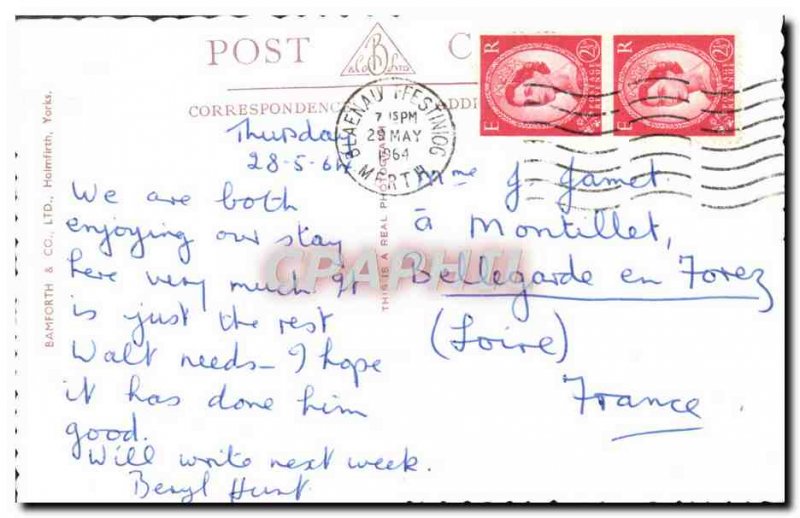 POST C
B
CORRESPONDENCE
BLAENAU FFESTINIOG
7 15PM
29 MAY
1964
MERTH
E R
2½D
E R
2½D
Thursday
28-5-64
We are both
enjoying our stay
here very much It
is just the rest
Walt needs – I hope
it has done him
good.
Will write next week.
Beryl Hunt
Mme J. Jamet
à Montillet,
Bellegarde en Forez
(Loire)
France
BAMFORTH & CO., LTD., Holmfirth, Yorks.
THIS IS A REAL PHOTOGRAPH
CPAPHIL